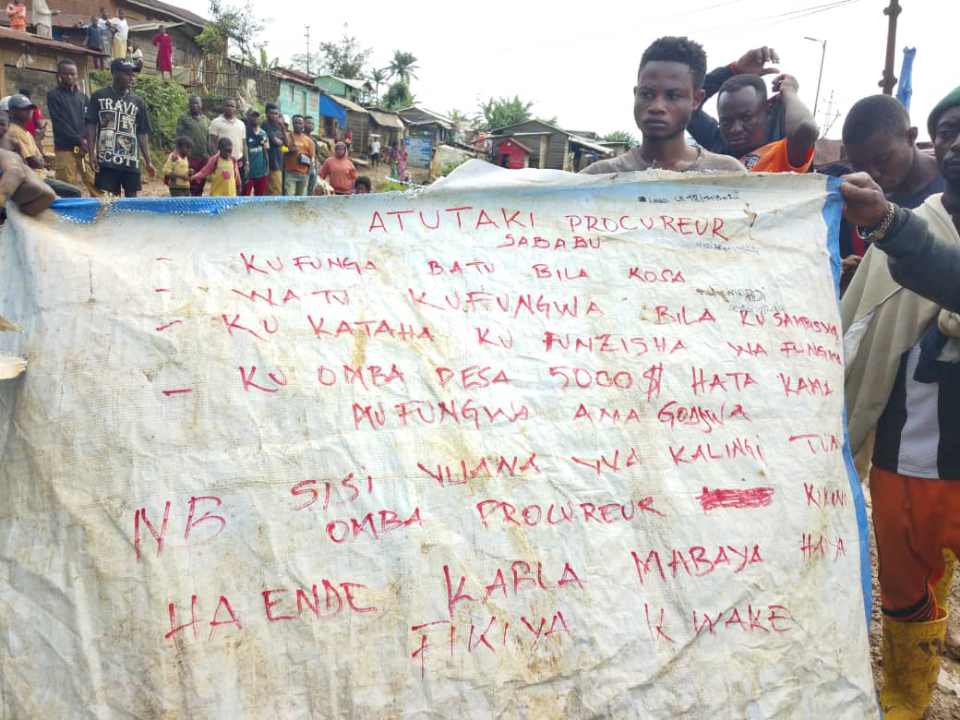 TRAVIS
SCOTT
ATUTAKI PROCUREUR
SABABU
- KUFUNGA BATU BILA KOSA
- WATU KUFUNGWA BILA KU SAMBISHWA
- KU KATAHA KU FUNZISHA WA FUNGWA
- KU OMBA DESA 5000$ HATA KAMA
MUFUNGWA AMA
NB SISI VIJANA WA KALINGI TUNA
OMBA PROCUREUR
HA ENDE KABLA MABAYA HAYA
FIKIYA KWAKE